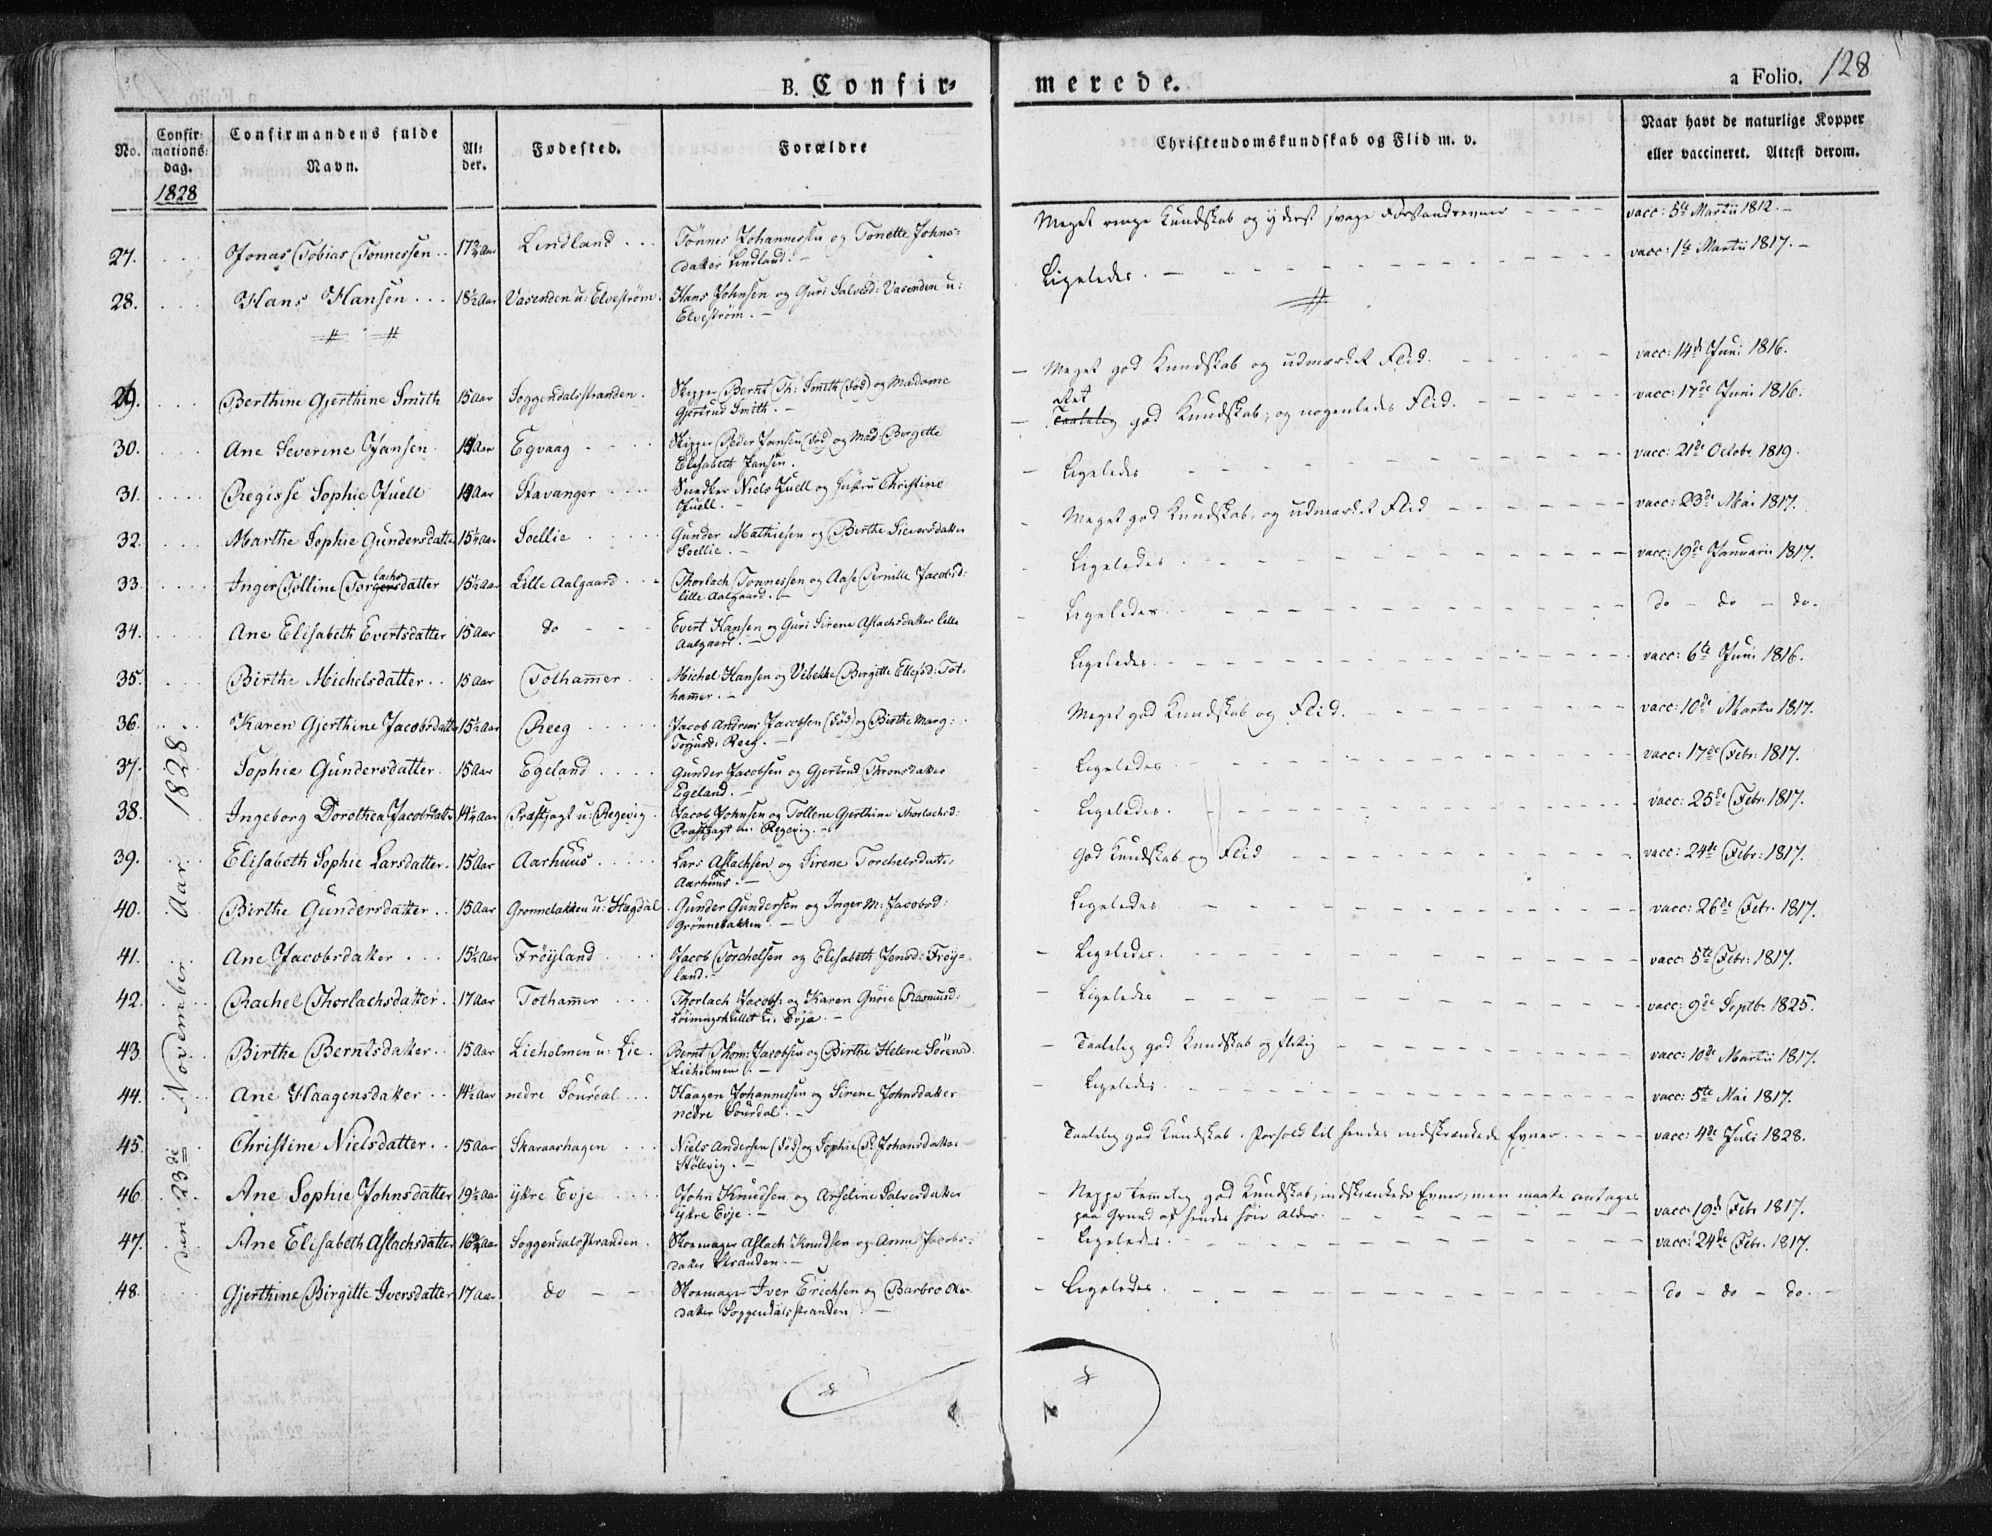 B. Confir- merede. a Folio. 128
No. Confirmations: dag. Confirmandens fulde Navn. Alder. Fødested. Forældre Christendomskundskab og Flid m. v. Naar havt de naturlige Kopper eller vaccineret. Attest derom.
1828
27. Jonas Tobias Tonnessen 17¾ Aar Lindland Tönnes Johannessen og Tonette Johns- Meget ringe Kundskab og yderst svage Forstandsevner vacc: 5te Martii 1812.
datter Lindland.
28. Hans Hansen 18½ Aar Vasenden u: Elvestrøm Hans Johnsen og Guri Salvesd: Vasenden u: Ligeledes. vacc: 1ste Martii 1817.
Elvestrøm.
29. Berthine Gjerthine Smith 15 Aar Soggendalsstranden Skipper Bernt Th: Smith (død) og Madame Meget god Kundskab og udmærket Flid. vacc: 14de Juni 1816.
Gjertrud Smith.
30. Ane Severine Jansen 14 Aar Egvaag Skipper Peder Jansen (død) og Mad: Birgette Ret god Kundskab, og nogenledes Flid. vacc: 17de Juni 1816.
Elisabeth Jansen.
31. Regisse Sophie Juell 14 Aar Stavanger Snedker Niels Juell og Christine Ligeledes vacc: 21de Octobr 1819.
Juell.
32. Marthe Sophie Gundersdatter 15½ Aar Soellie Gunder Mathiesen og Birthe Sieversdatter Meget god Kundskab, og udmærket Flid vacc: 23de Mai 1817.
Soellie.
33. Inger Tolline Torlachsdatter 15½ Aar Lille Aalgaard Thorlach Tonnessen og Aase Pernille Jacobsd: Ligeledes vacc: 19de Januarii 1817.
lille Aalgaard.
34. Ane Elisabeth Evertsdatter 15 Aar do Evert Hansen og Guri Sirene Aslachsdatter lille Ligeledes do - do - do.
Aalgaard.
35. Birthe Michelsdatter 15 Aar Tothammer Michel Hansen og Vibekke Birgitte Ellefsd: Tot- Ligeledes. vacc: 6te Juni 1816.
hammer.
36. Karen Gjerthine Jacobsdatter 15½ Aar Reeg Jacob Andreas Jacobsen (død) og Birthe Marg: Meget god Kundskab og Flid. vacc: 10de Martii 1817.
Reeg.
37. Sophie Gundersdatter 15 Aar Egeland Gunder Jacobsen og Gjertrud Thronsdatter Ligeledes vacc: 17de Febr. 1817.
Egeland.
38. Ingeborg Dorothea Jacobsdatter 14½ Aar Præstjagt u: Regevig Jacob Johnsen og Tollene Gjerthine Thorlachsd: Ligeledes. vacc: 25de Febr. 1817.
Præstjagt u: Regevig.
39. Elisabeth Sophie Larsdatter 15 Aar Aarhuus Lars Aslachsen og Sirene Torchelsdatter God Kundskab og Flid vacc: 24de Febr: 1817.
Aarhuus.
40. Birthe Gundersdatter 15 Aar Grønnebakken u: Hægdal Gunder Gundersen og Inger M: Jacobsd: Ligeledes vacc: 26de Febr. 1817.
Grønnebakken.
41. Ane Jacobsdatter 15½ Aar Frøyland Jacob Torchelsen og Elisabeth Jensd: Frøy- Ligeledes. vacc: 5te Febr: 1817.
land.
42. Rachel Thorlachsdatter 17 Aar Tothammer Thorlach Jacobs: og Karen Gurie Rasmusd: Ligeledes vacc: 9de Septbr 1825.
u: Evja.
43. Birthe Berntsdatter 15 Aar Lieholmen u: Lie Bernt Thom: Jacobsen og Birthe Helene Sørensd. Taalelig god Kundskab og flitig vacc: 10de Martii 1817.
Lieholmen.
44. Ane Haagensdatter 14½ Aar nedre Sourdal Haagen Johannessen og Sirene Johnsdatter Ligeledes. vacc: 5te Mai 1817.
nedre Sourdal.
45. Christine Nielsdatter 15 Aar Skaraashagen Niels Andersen (død) og Sophie Johansdatter Taalelig god Kundskab i Forhold til hendes indskrænkede Evner. vacc: 4de Juli 1828.
Stölevig.
46. Ane Sophie Johnsdatter 19½ Aar ytre Evje John Knudsen og Arseline Salvesdatter Neppe temelig god Kundskab, indskrænkede Evner, men maatte antages
ytre Evje. paa Grund af hendes høie Alder. vacc: 19de Febr 1817.
47. Ane Elisabeth Aslachsdatter 16¾ Aar Soggendalsstranden Skoemager Aslach Knudsen og Anne Jacobs- Ligeledes. vacc: 24de Febr. 1817.
datter Stranden.
48. Gjerthine Birgitte Iversdatter 17 Aar do Skoemager Iver Erichsen og Barbro Ols- Ligeledes. do - do - do.
datter Soggendalsstranden
den 23de November Aar 1828.